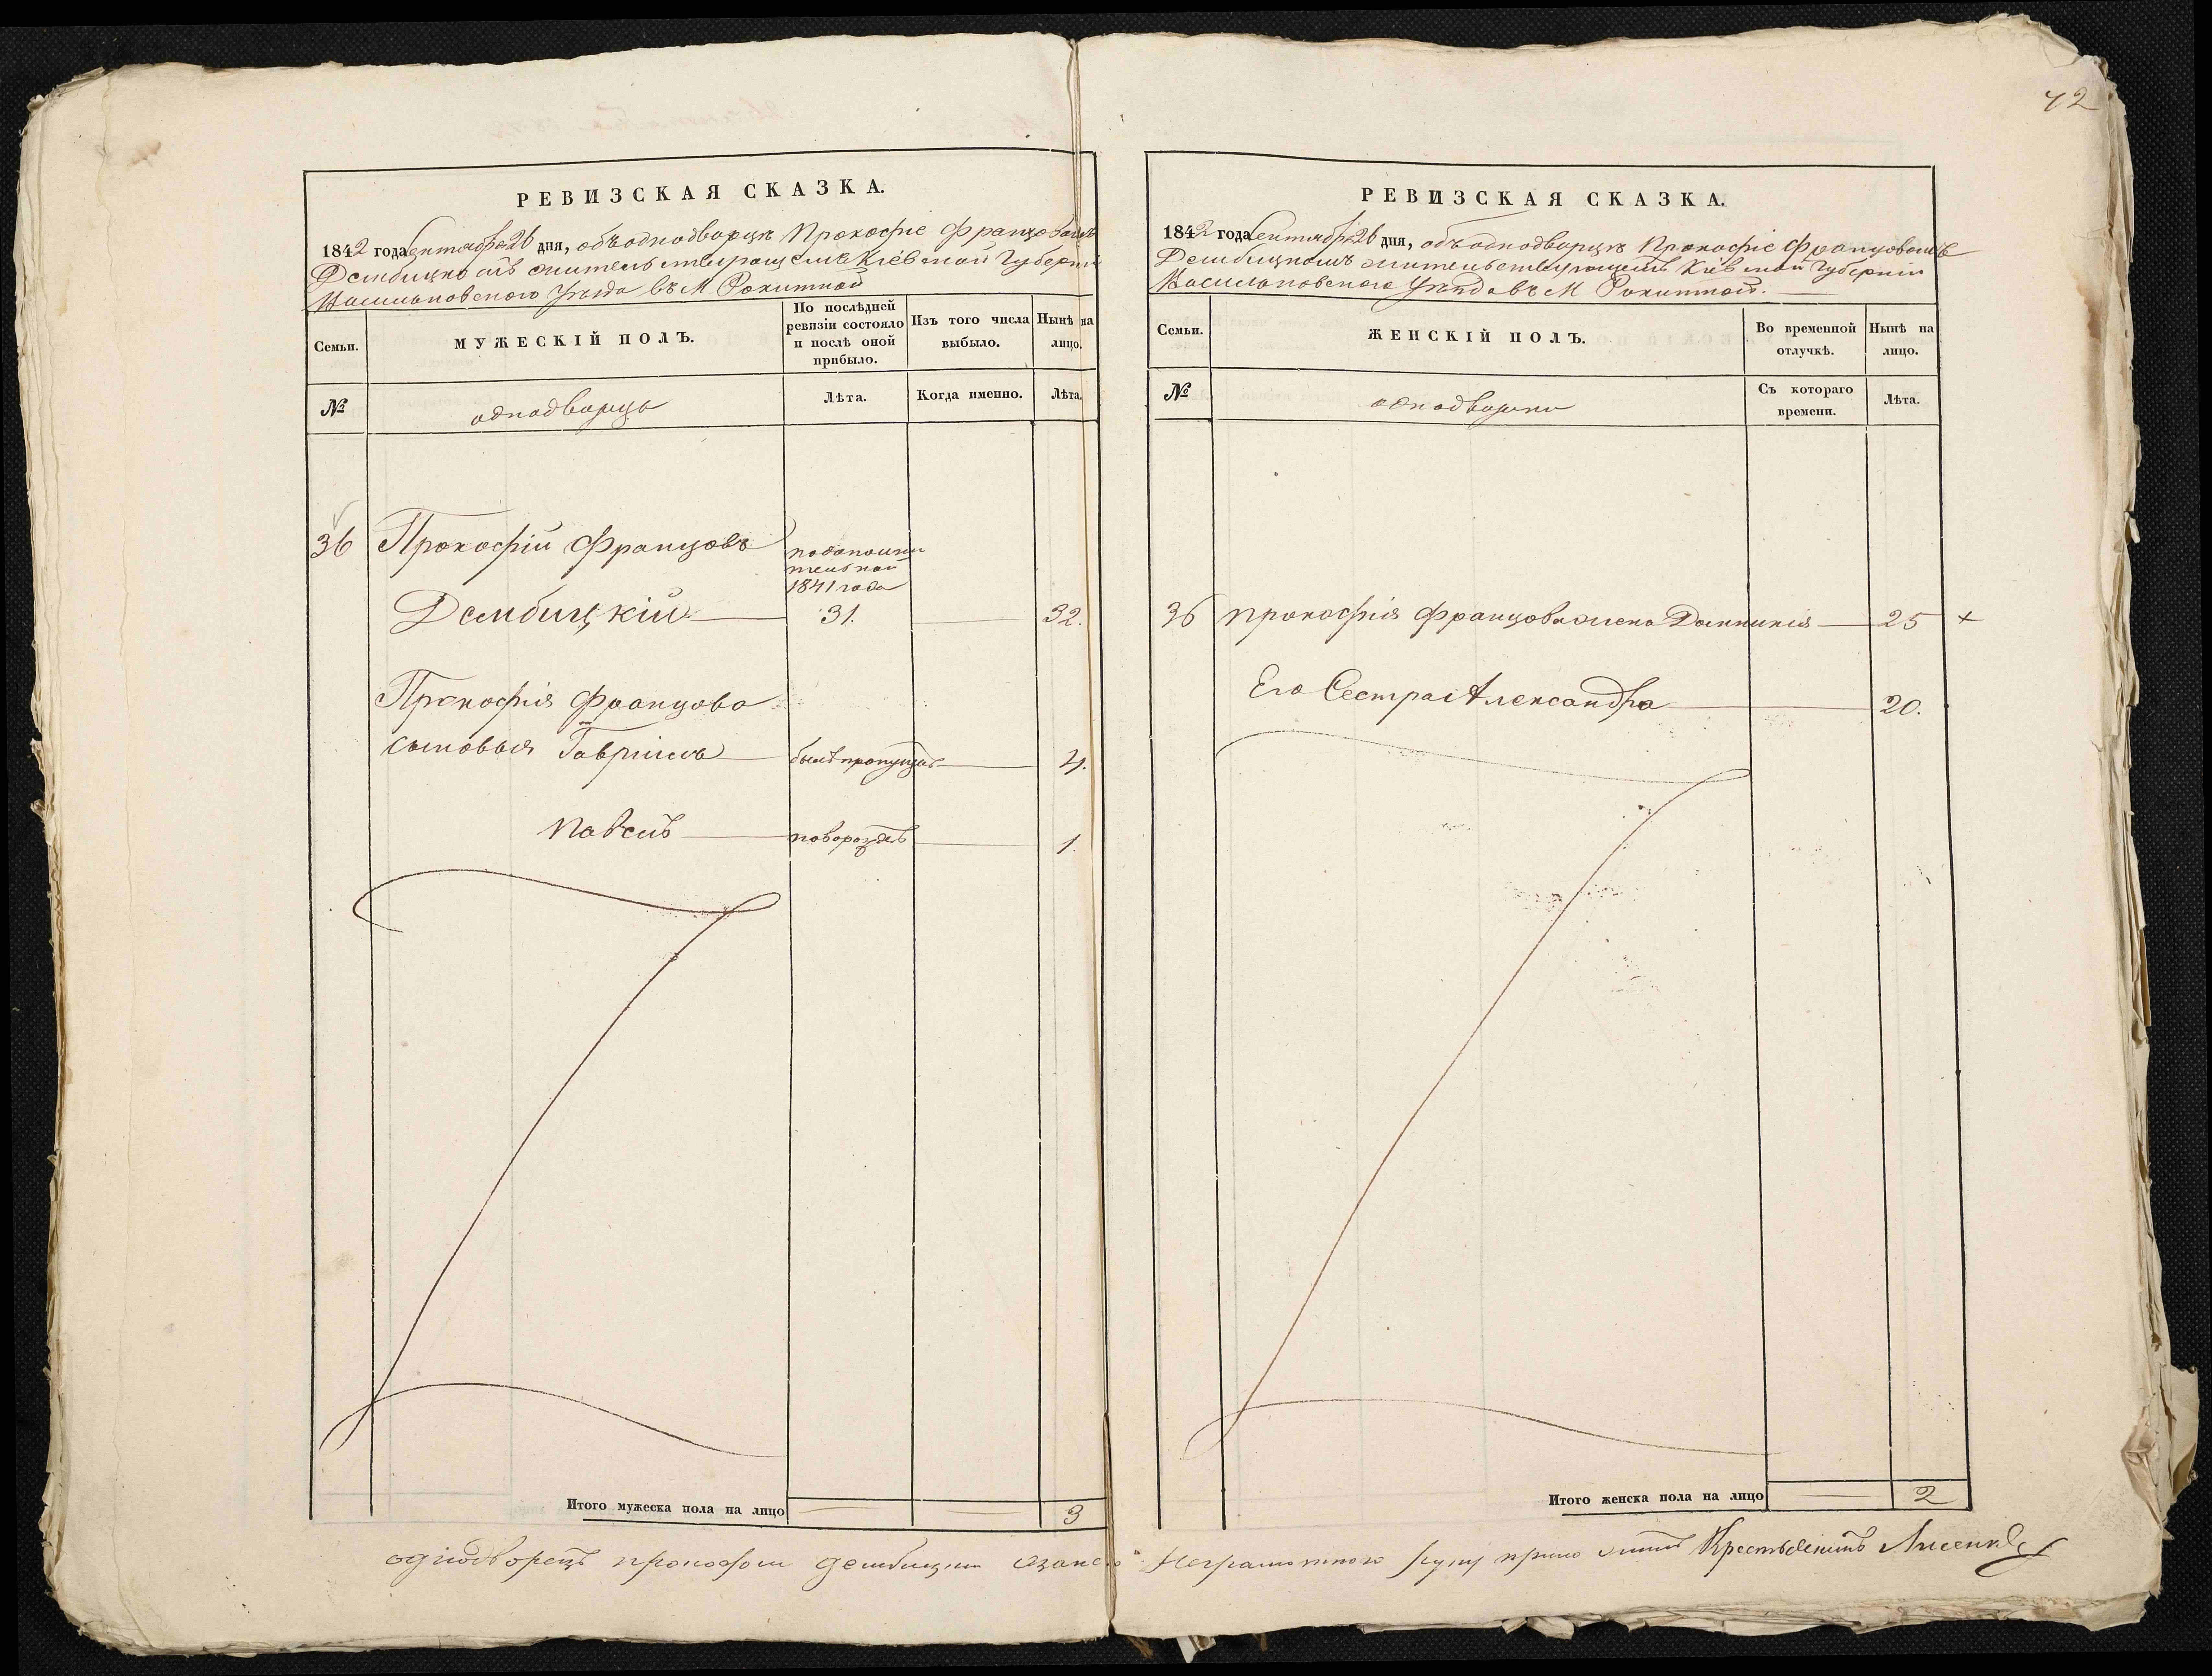 42
РЕВИЗСКАЯ СКАЗКА.
1842 года Сентября 26 дня, объ однодворцѣ Прокофіе Францовомъ
Дембицкомъ жительствующемъ Кіевской Губерніи
Васильковского Уѣзда въ М Рокитной
Семьи.
МУЖЕСКІЙ ПОЛЪ.
По послѣдней ревизіи состояло и послѣ оной прибыло.
Изъ того числа выбыло.
Нынѣ на лицо.
№
однодворцы
Лѣта.
Когда именно.
Лѣта.
36 Прокофій Францовъ
по дополни
тельной
1841 года
Дембицкій 31. 32.
Прокофія Францова
сыновья Гавріилъ былъ пропущен 4.
Павелъ новорожден 1.
Итого мужеска пола на лицо 3
РЕВИЗСКАЯ СКАЗКА.
1842 года Сентября 26 дня, объ однодворцѣ Прокофіе Францовомъ
Дембицкомъ жительствующемъ Кіевской Губерніи
Васильковского Уѣзда въ М Рокитной.
Семьи.
ЖЕНСКІЙ ПОЛЪ.
Во временной отлучкѣ.
Нынѣ на лицо.
№
однодворки
Съ котораго времени.
Лѣта.
36 Прокофія Францова жена Домникія 25 +
Его Сестра Александра 20.
Итого женска пола на лицо 2
однодворецъ прокофій дембицкій неграмотного руку крестьянинъ Лисенко